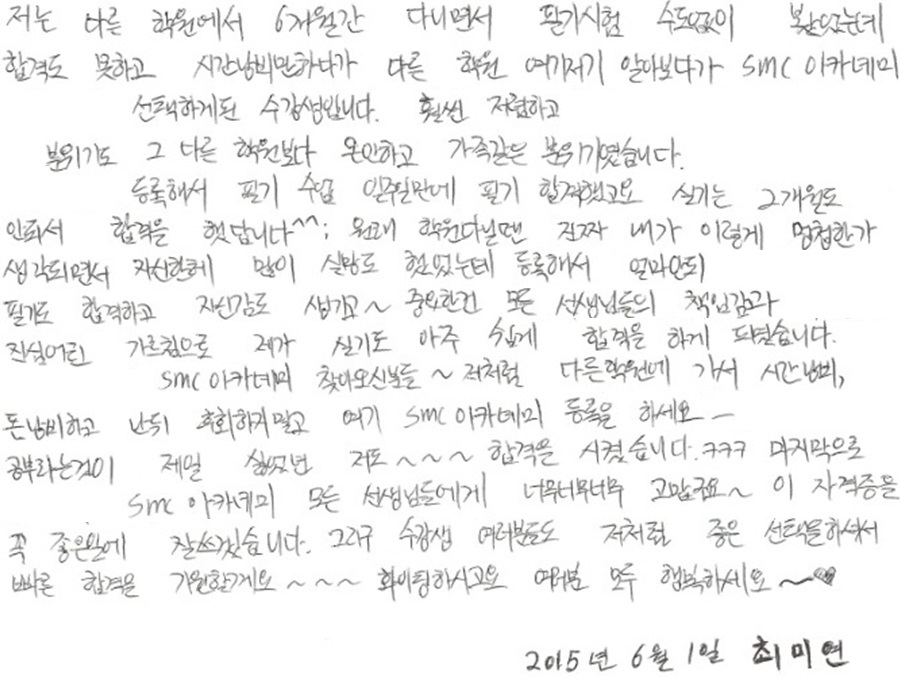 저는 다른 학원에서 6개월간 다니면서 필기시험 수도없이 봤었는데
합격도 못하고 시간낭비만하다가 다른 학원 여기저기 알아보다가 SMC 아카데미
선택하게된 수강생입니다. 훨씬 저렴하고
분위기도 그 다른 학원보다 온안하고 가족같은 분위기였습니다.
등록해서 필기 수업 일주일만에 필기 합격했고요 실기는 2개월도
안돼서 합격을 했답니다^^; 원래 학원다닐땐 진짜 내가 이렇게 멍청한가
생각되면서 자신한테 많이 실망도 했었는데 등록해서 얼마안되
필기도 합격하고 자신감도 생기고~ 중요한건 모든 선생님들의 책임감과
진실어린 가르침으로 제가 실기도 아주 쉽게 합격을 하게 되었습니다.
SMC 아카데미 찾아오신분들 ~ 저처럼 다른학원에 가서 시간낭비,
돈낭비하고 난뒤 후회하지말고 여기 SMC 아카데미 등록을 하세요 —
공부라는것이 제일 싫었던 저도 ~ ~ ~ 합격을 시켰습니다. ㅋㅋㅋ 마지막으로
SMC 아카데미 모든 선생님들에게 너무너무너무 고맙구요~ 이 자격증을
꼭 좋은일에 잘쓰겠습니다. 그리구 수강생 여러분들도 저처럼 좋은 선택을하셔서
빠른 합격을 기원할게요 ~ ~ ~ 화이팅하시고요 여러분 모두 행복하세요 ~♥
2015년 6월 1일 최미연